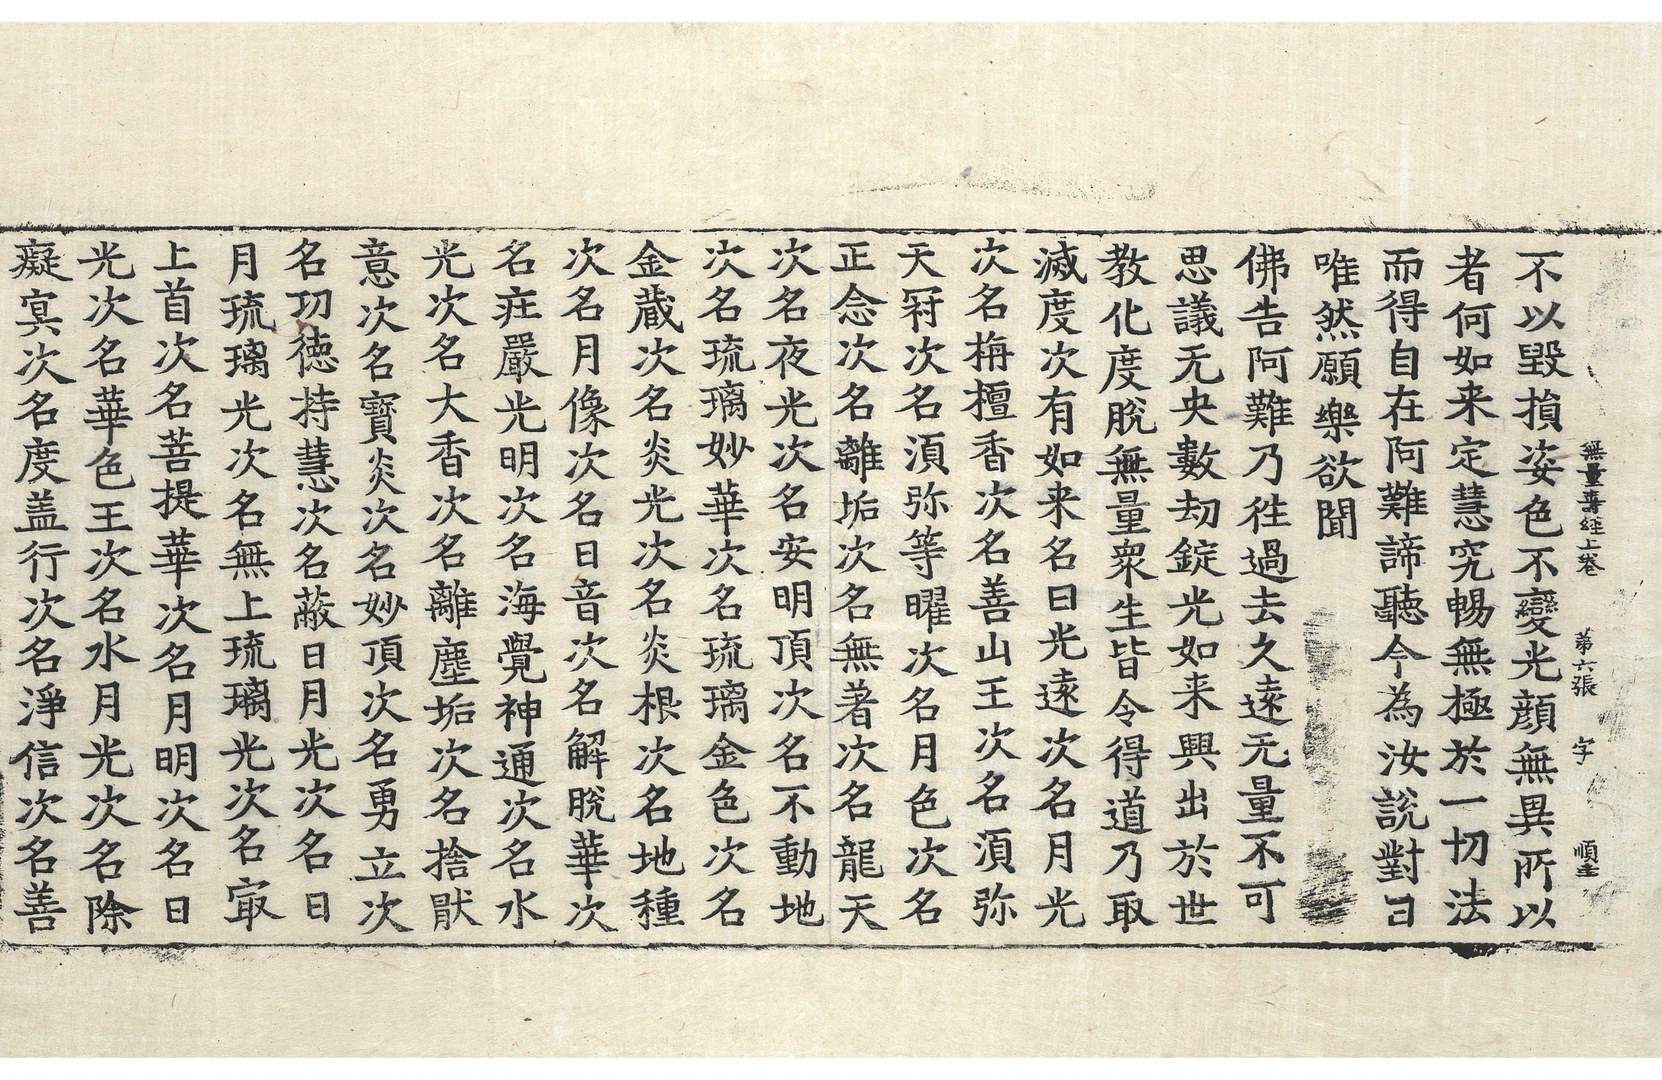 無量壽経上卷　第六張　字　順

不以毀損姿色不變光顏無異所以
者何如来定慧究暢無極於一切法
而得自在阿難諦聽今為汝說對曰
唯然願樂欲聞
佛告阿難乃徃過去久遠无量不可
思議无央數劫錠光如来興出於世
教化度脫無量衆生皆令得道乃取
滅度次有如来名曰光遠次名月光
次名栴檀香次名善山王次名湏弥
天冠次名湏弥等曜次名月色次名
正念次名離垢次名無著次名龍天
次名夜光次名安明頂次名不動地
次名琉璃妙華次名琉璃金色次名
金蔵次名炎光次名炎根次名地種
次名月像次名日音次名解脫華次
名莊嚴光明次名海覺神通次名水
光次名大香次名離塵垢次名捨猒
意次名寶炎次名妙頂次名勇立次
名功德持慧次名蔽日月光次名日
月琉璃光次名無上琉璃光次名寂
上首次名菩提華次名月明次名日
光次名華色王次名水月光次名除
癡冥次名度盖行次名淨信次名善